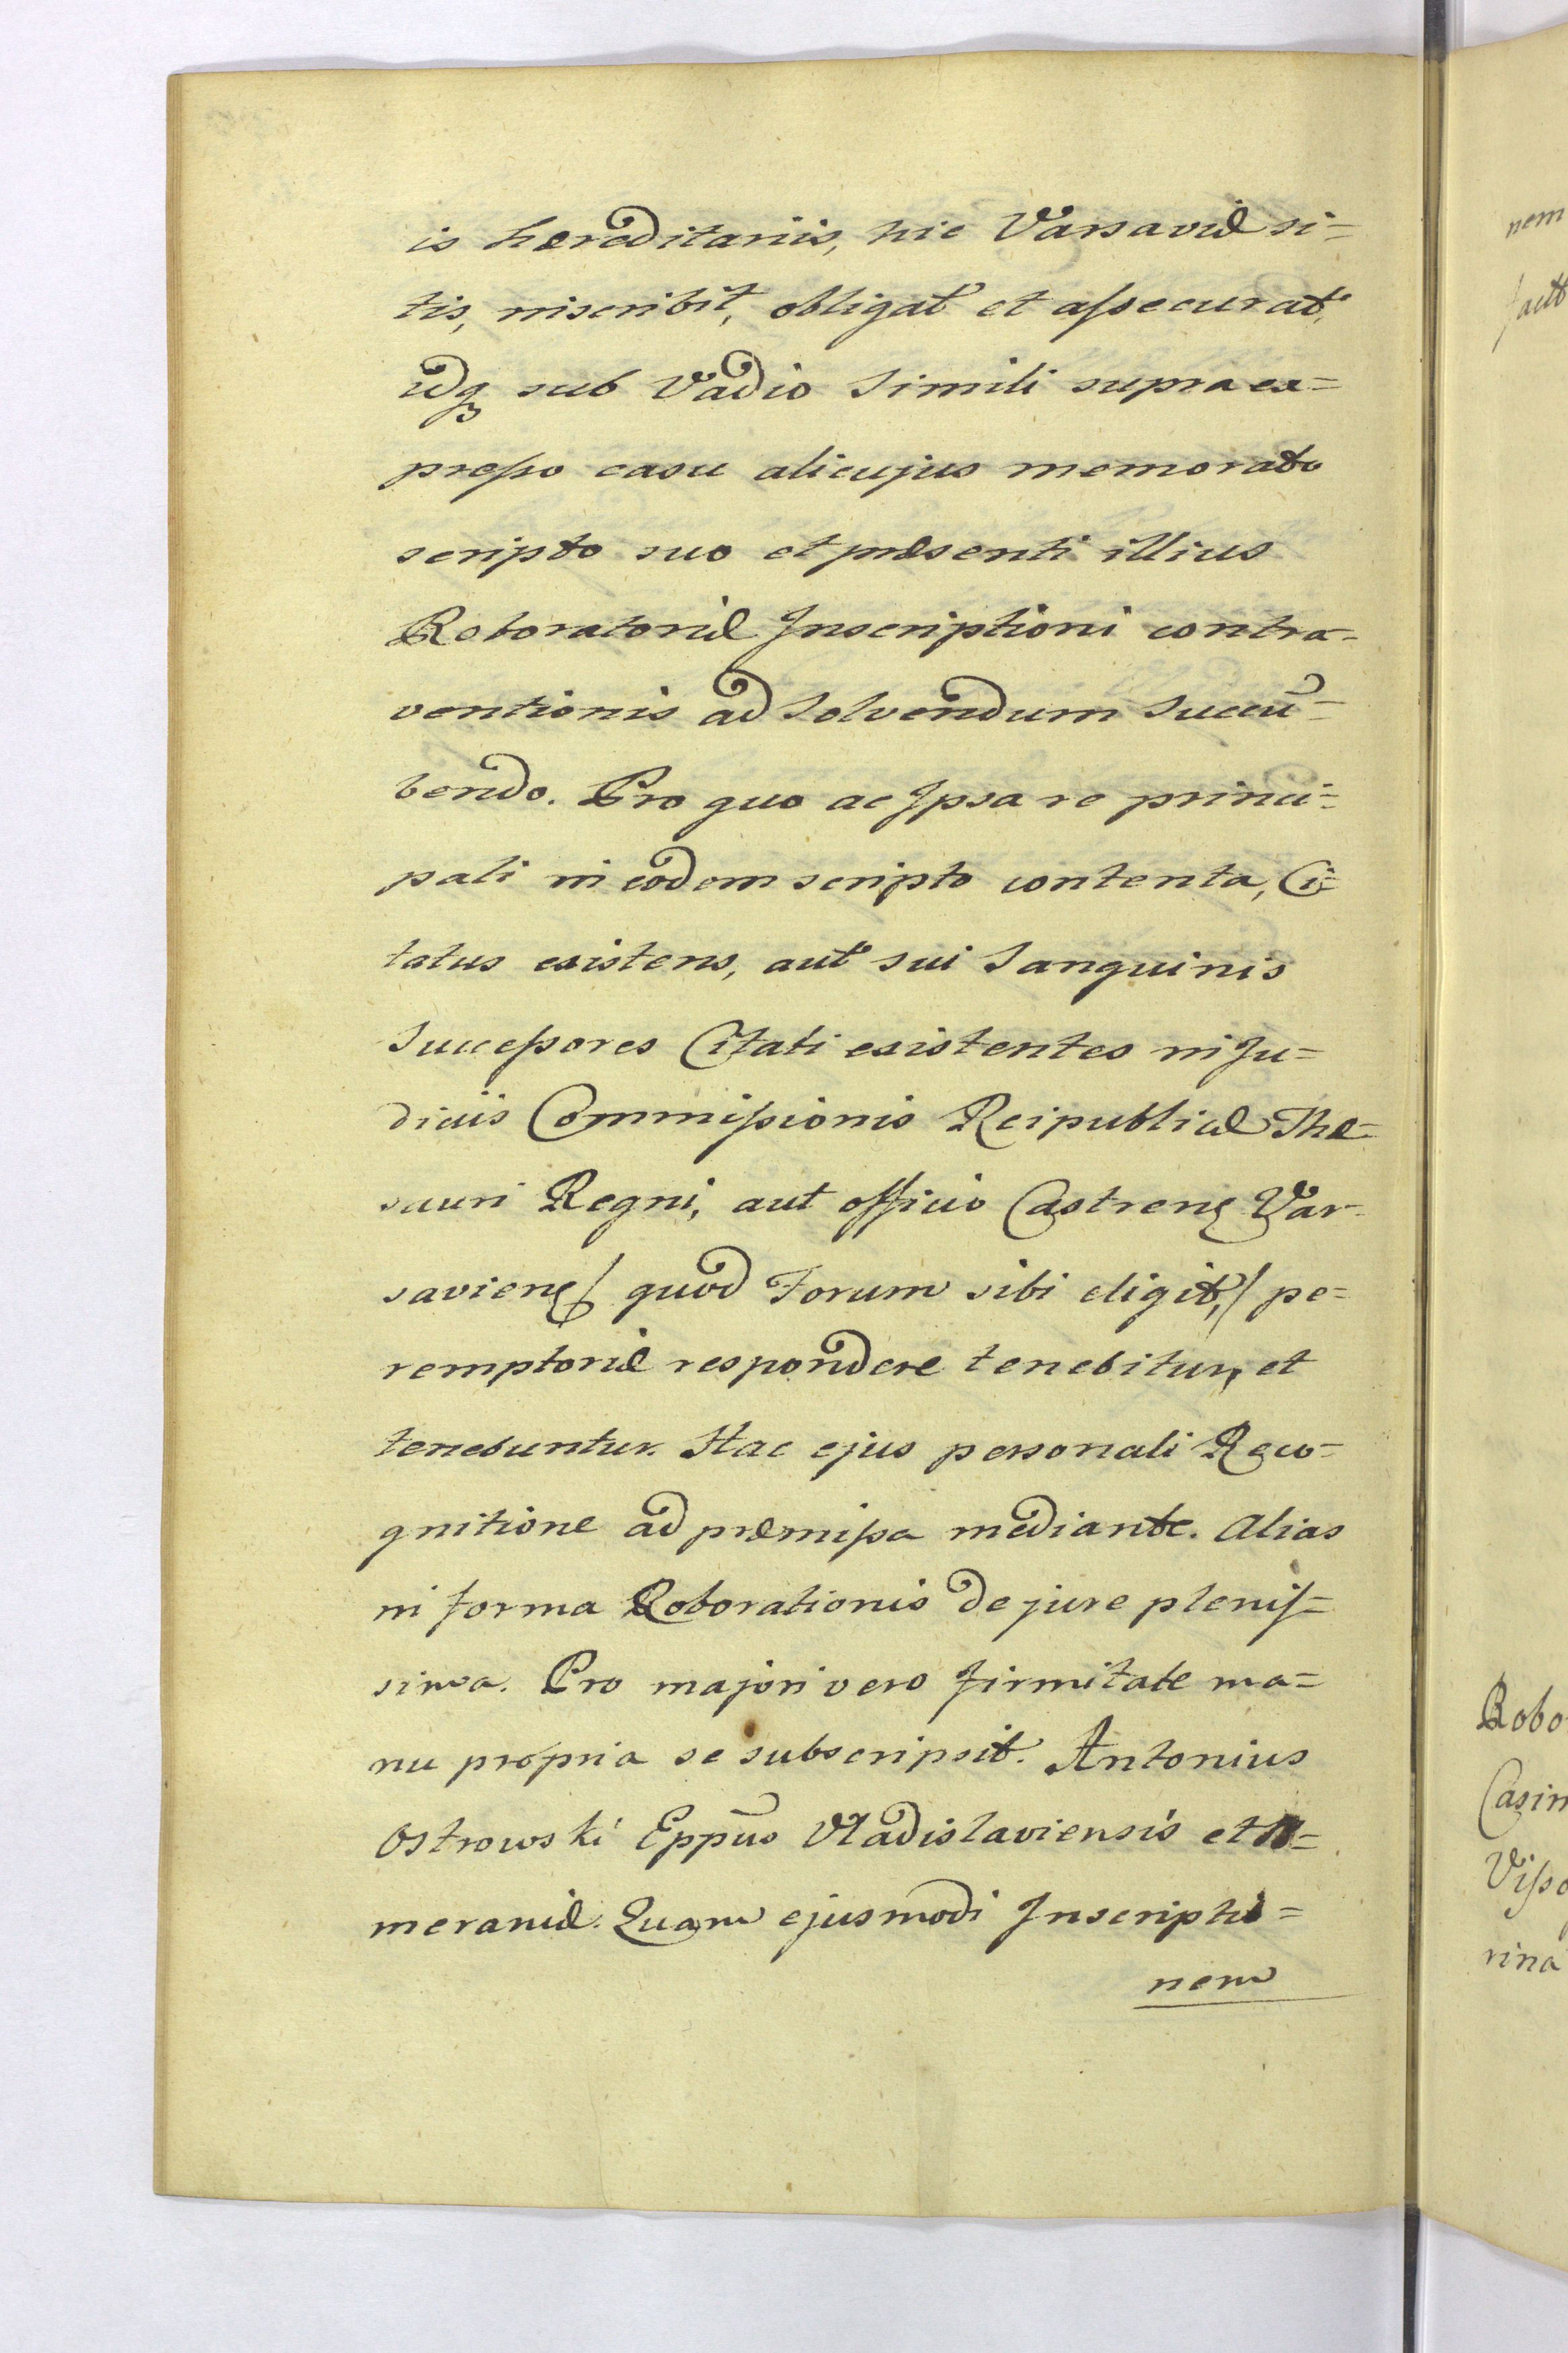 is hæreditariis, hic Varsaviæ si=
tis, inscribit, obligat et aſsecurat,
idq₃ sub Vadio Simili supra ex=
preſso casu alicujus memorato
scripto suo et præsenti illius
Roboratoriæ Inscriptioni contra-
ventionis ad Solvendum Succū=
bendo. Pro quo ac Ipsa re princi=
pali in eodem scripto contenta, Ci=
tatus existens, aut sui Sanguinis
Succeſsores Citati existentes in Ju=
diciis Commiſsionis Reipublicæ Thæ=
sauri Regni, aut officio Castrenȝ Var-
savienȝ / quod Forum sibi eligit, / pe=
remptoriæ respondere tenebitur, et
tenebuntur. Hac ejus personali Reco=
gnitione ad præmiſsa mediante. Alias
in forma Roborationis de jure pleniſ=
sima. Pro majori vero firmitate ma=
nu propria se subscripsit. Antonius
Ostrowski Eppūs Vladislaviensis et
meraniæ. Quam ejusmodi Inscriptio=
nem
nem
Robo
Casim
Viſso
rina